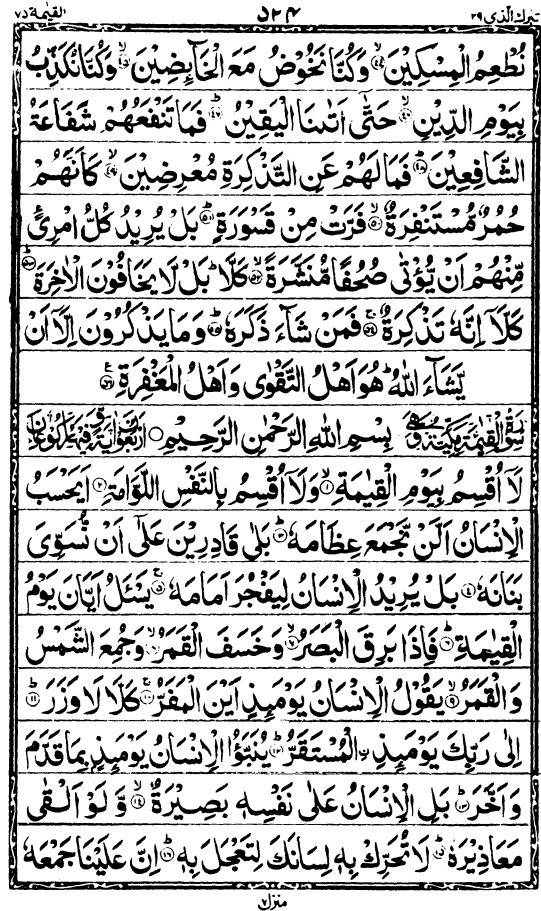 تبرك الذي ٢٩ ٥٢٤ القيمة ٧٥
نُطْعِمُ الْمِسْكِيْنَ ۙ﴿٤٤﴾ وَكُنَّا نَخُوْضُ مَعَ الْخَآئِضِيْنَ ۙ﴿٤٥﴾ وَكُنَّا نُكَذِّبُ
بِيَوْمِ الدِّيْنِ ۙ﴿٤٦﴾ حَتّٰۤى اَتٰىنَا الْيَقِيْنُ ؕ﴿٤٧﴾ فَمَا تَنْفَعُهُمْ شَفَاعَةُ
الشَّافِعِيْنَ ؕ﴿٤٨﴾ فَمَا لَهُمْ عَنِ التَّذْكِرَةِ مُعْرِضِيْنَ ۙ﴿٤٩﴾ كَاَنَّهُمْ
حُمُرٌ مُّسْتَنْفِرَةٌ ۙ﴿٥٠﴾ فَرَّتْ مِنْ قَسْوَرَةٍ ؕ﴿٥١﴾ بَلْ يُرِيْدُ كُلُّ امْرِئٍ
مِّنْهُمْ اَنْ يُّؤْتٰى صُحُفًا مُّنَشَّرَةً ۙ﴿٥٢﴾ كَلَّا ؕ بَلْ لَّا يَخَافُوْنَ الْاٰخِرَةَ ؕ﴿٥٣﴾
كَلَّاۤ اِنَّهٗ تَذْكِرَةٌ ۚ﴿٥٤﴾ فَمَنْ شَآءَ ذَكَرَهٗ ؕ﴿٥٥﴾ وَمَا يَذْكُرُوْنَ اِلَّاۤ اَنْ
يَّشَآءَ اللّٰهُ ؕ هُوَ اَهْلُ التَّقْوٰى وَاَهْلُ الْمَغْفِرَةِ ﴿٥٦﴾
سورة القيمة مكية وهى بِسْمِ اللّٰهِ الرَّحْمٰنِ الرَّحِيْمِ ○ اربعون اية وفيها ركوعان
لَاۤ اُقْسِمُ بِيَوْمِ الْقِيٰمَةِ ۙ﴿١﴾ وَلَاۤ اُقْسِمُ بِالنَّفْسِ اللَّوَّامَةِ ؕ﴿٢﴾ اَيَحْسَبُ
الْاِنْسَانُ اَلَّنْ نَّجْمَعَ عِظَامَهٗ ؕ﴿٣﴾ بَلٰى قَادِرِيْنَ عَلٰۤى اَنْ نُّسَوِّىَ
بَنَانَهٗ ﴿٤﴾ بَلْ يُرِيْدُ الْاِنْسَانُ لِيَفْجُرَ اَمَامَهٗ ۚ﴿٥﴾ يَسْـَٔلُ اَيَّانَ يَوْمُ
الْقِيٰمَةِ ؕ﴿٦﴾ فَاِذَا بَرِقَ الْبَصَرُ ۙ﴿٧﴾ وَخَسَفَ الْقَمَرُ ۙ﴿٨﴾ وَجُمِعَ الشَّمْسُ
وَالْقَمَرُ ۙ﴿٩﴾ يَقُوْلُ الْاِنْسَانُ يَوْمَئِذٍ اَيْنَ الْمَفَرُّ ۚ﴿١٠﴾ كَلَّا لَا وَزَرَ ؕ﴿١١﴾
اِلٰى رَبِّكَ يَوْمَئِذٍ ِۨالْمُسْتَقَرُّ ؕ﴿١٢﴾ يُنَبَّؤُا الْاِنْسَانُ يَوْمَئِذٍۭ بِمَا قَدَّمَ
وَاَخَّرَ ؕ﴿١٣﴾ بَلِ الْاِنْسَانُ عَلٰى نَفْسِهٖ بَصِيْرَةٌ ۙ﴿١٤﴾ وَّلَوْ اَلْقٰى
مَعَاذِيْرَهٗ ؕ﴿١٥﴾ لَا تُحَرِّكْ بِهٖ لِسَانَكَ لِتَعْجَلَ بِهٖ ؕ﴿١٦﴾ اِنَّ عَلَيْنَا جَمْعَهٗ
منزل ٧